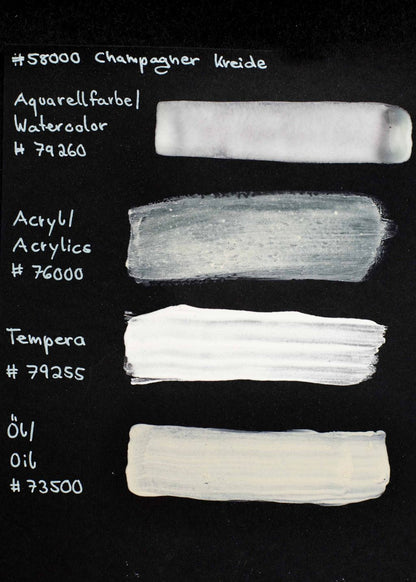 #58000 Champagner Kreide
Aquarellfarbe/
Watercolor
# 79260
Acryl/
Acrylics
# 76000
Tempera
# 79255
Öl/
Oil
# 73500